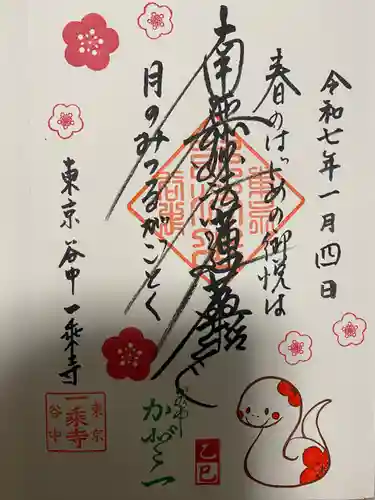 令和七年一月四日
春のはじめの御悦は
南無妙法蓮華経
月のみつるがごとく
東京谷中一乗寺
東京
一乗寺
谷中
乙巳